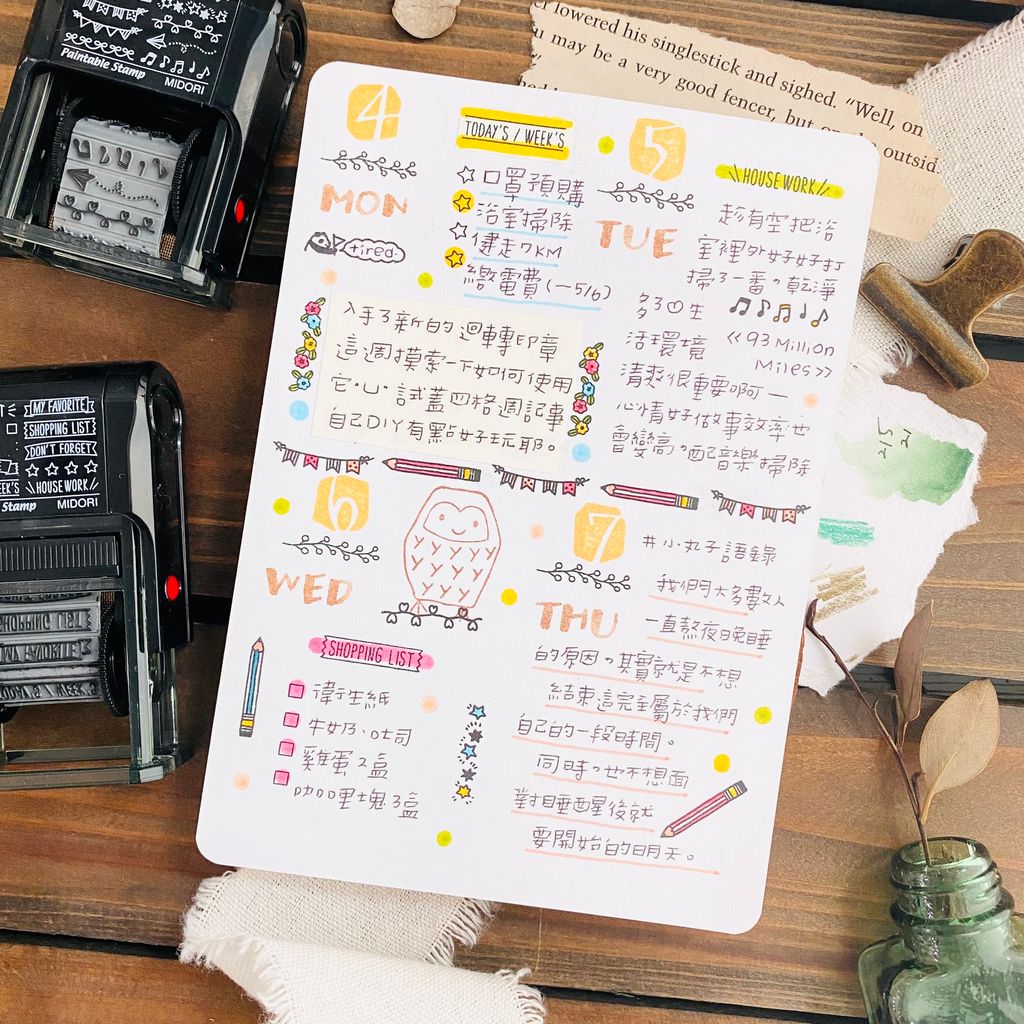 Paintable Stamp
MIDORI
MY FAVORITE
SHOPPING LIST
DON'T FORGET
HOUSE WORK
Stamp MIDORI
SHOPPING LIST
er lowered his singlestick and sighed. "Well, on
u may be a very good fencer, but on
outsid
4
MON
tired
TODAY'S / WEEK'S
口罩預購
浴室掃除
健走7KM
繳電費(-5/6)
入手了新的迴轉印章
這週摸索一下如何使用
它"U"試蓋四格週記事
自己DIY有點好玩耶。
5
TUE
HOUSE WORK
趁有空把浴
室裡外好好打
掃了一番,乾淨
多了!生
活環境 <<93 Million
Miles>>
清爽很重要啊—
心情好做事效率也
會變高,配音樂掃除
6
WED
SHOPPING LIST
衛生紙
牛奶、吐司
雞蛋2盒
咖哩塊3盒
7
THU
#小丸子語錄
我們大多數人
一直熬夜晚睡
的原因,其實就是不想
結束這完全屬於我們
自己的一段時間。
同時,也不想面
對睡醒後就
要開始的明天。